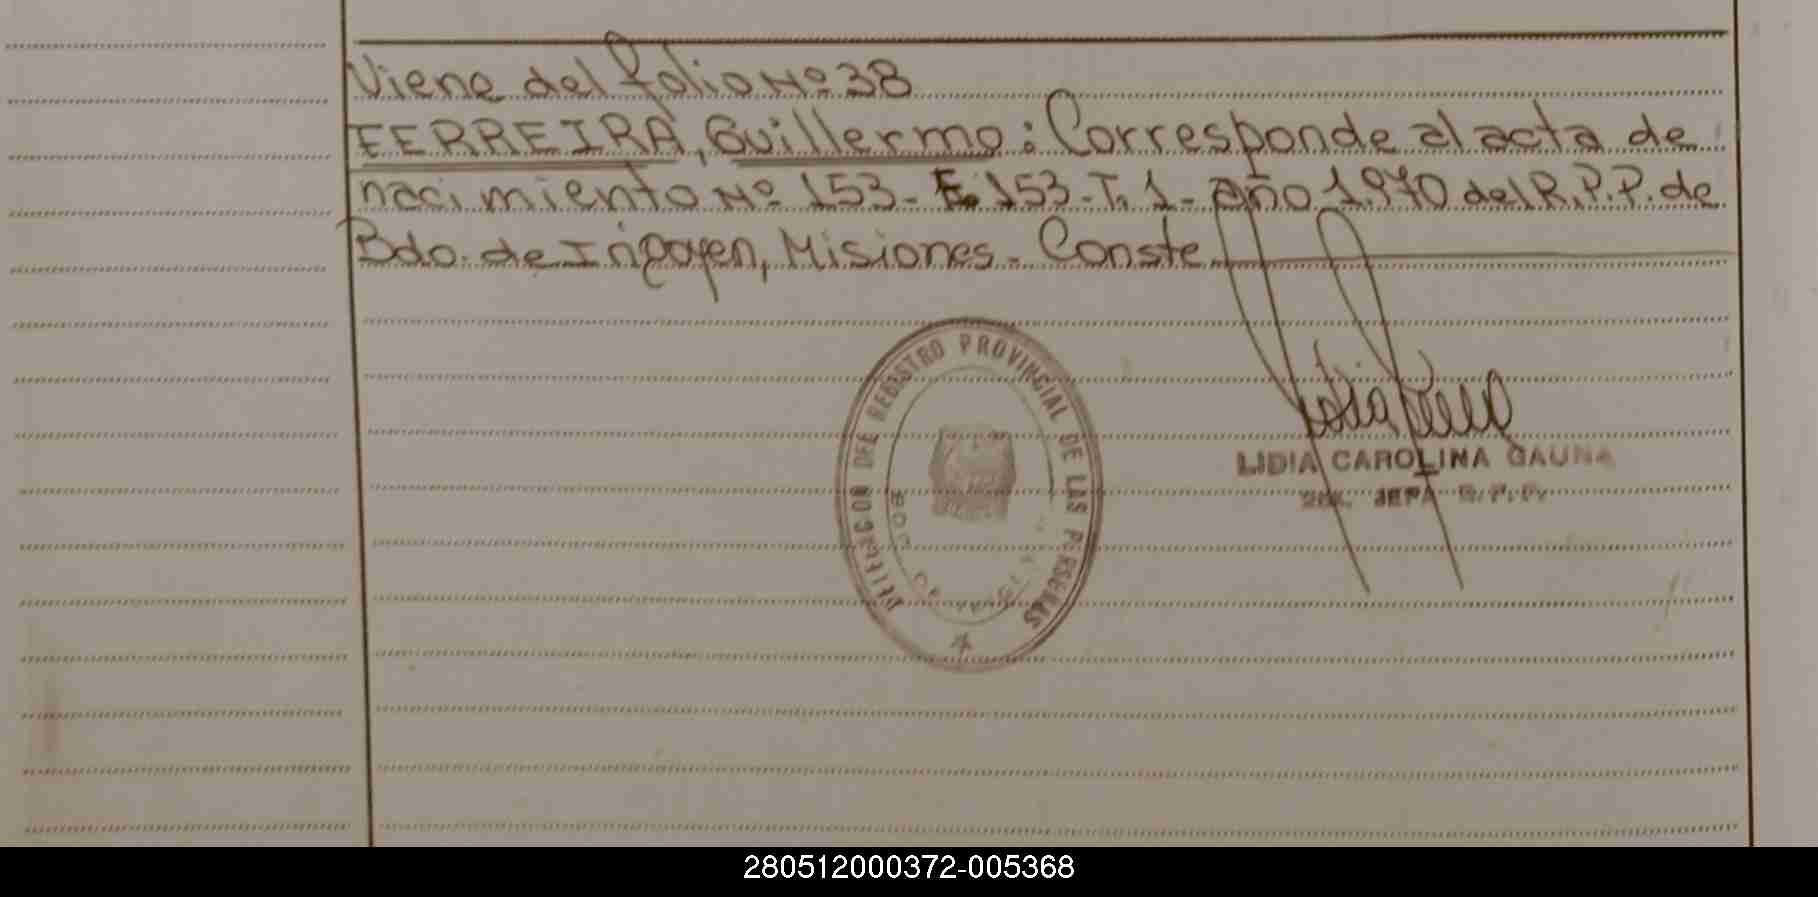 Viene del folio Nº 38
FERREIRA, Guillermo: Corresponde al acta de
nacimiento Nº 153- F. 153-T. 1- año 1.970 del R.P.P. de
Bdo. de Irigoyen, Misiones- Conste
DELEGACION DEL REGISTRO PROVINCIAL DE LAS PERSONAS
LIDIA CAROLINA GAUNA
JEFA R.P.P.
280512000372-005368